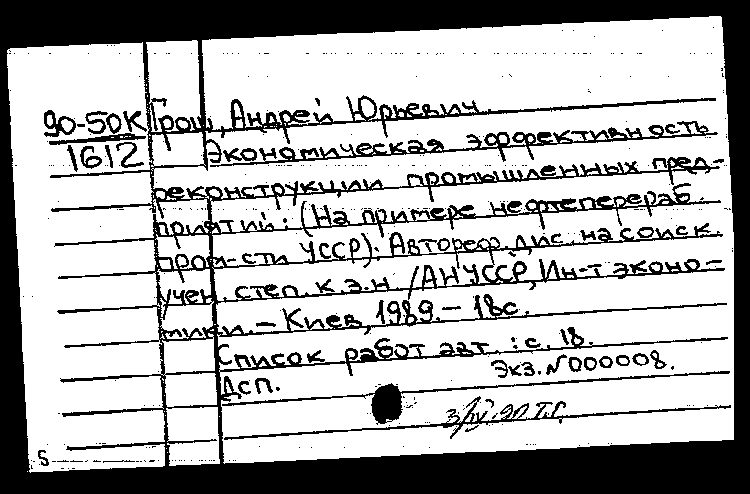 90-50К Грош, Андрей Юрьевич.
1612 Экономическая эффективность
реконструкции промышленных пред-
приятий: (На примере нефтеперераб.
пром-сти УССР): Автореф. дис. на соиск.
учен. степ. к.э.н. /АН УССР, Ин-т эконо-
мики. – Киев, 1989. – 18с.
Список работ авт.: с. 18.
Дсп. Экз. N 000008.
3/IV-90 Т.Г.
5